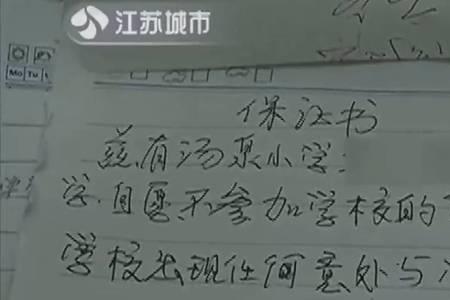 江苏城市
Mo Tu
保证书
兹有汤泉小学:
学,自愿不参加学校的
学校出现任何意外与